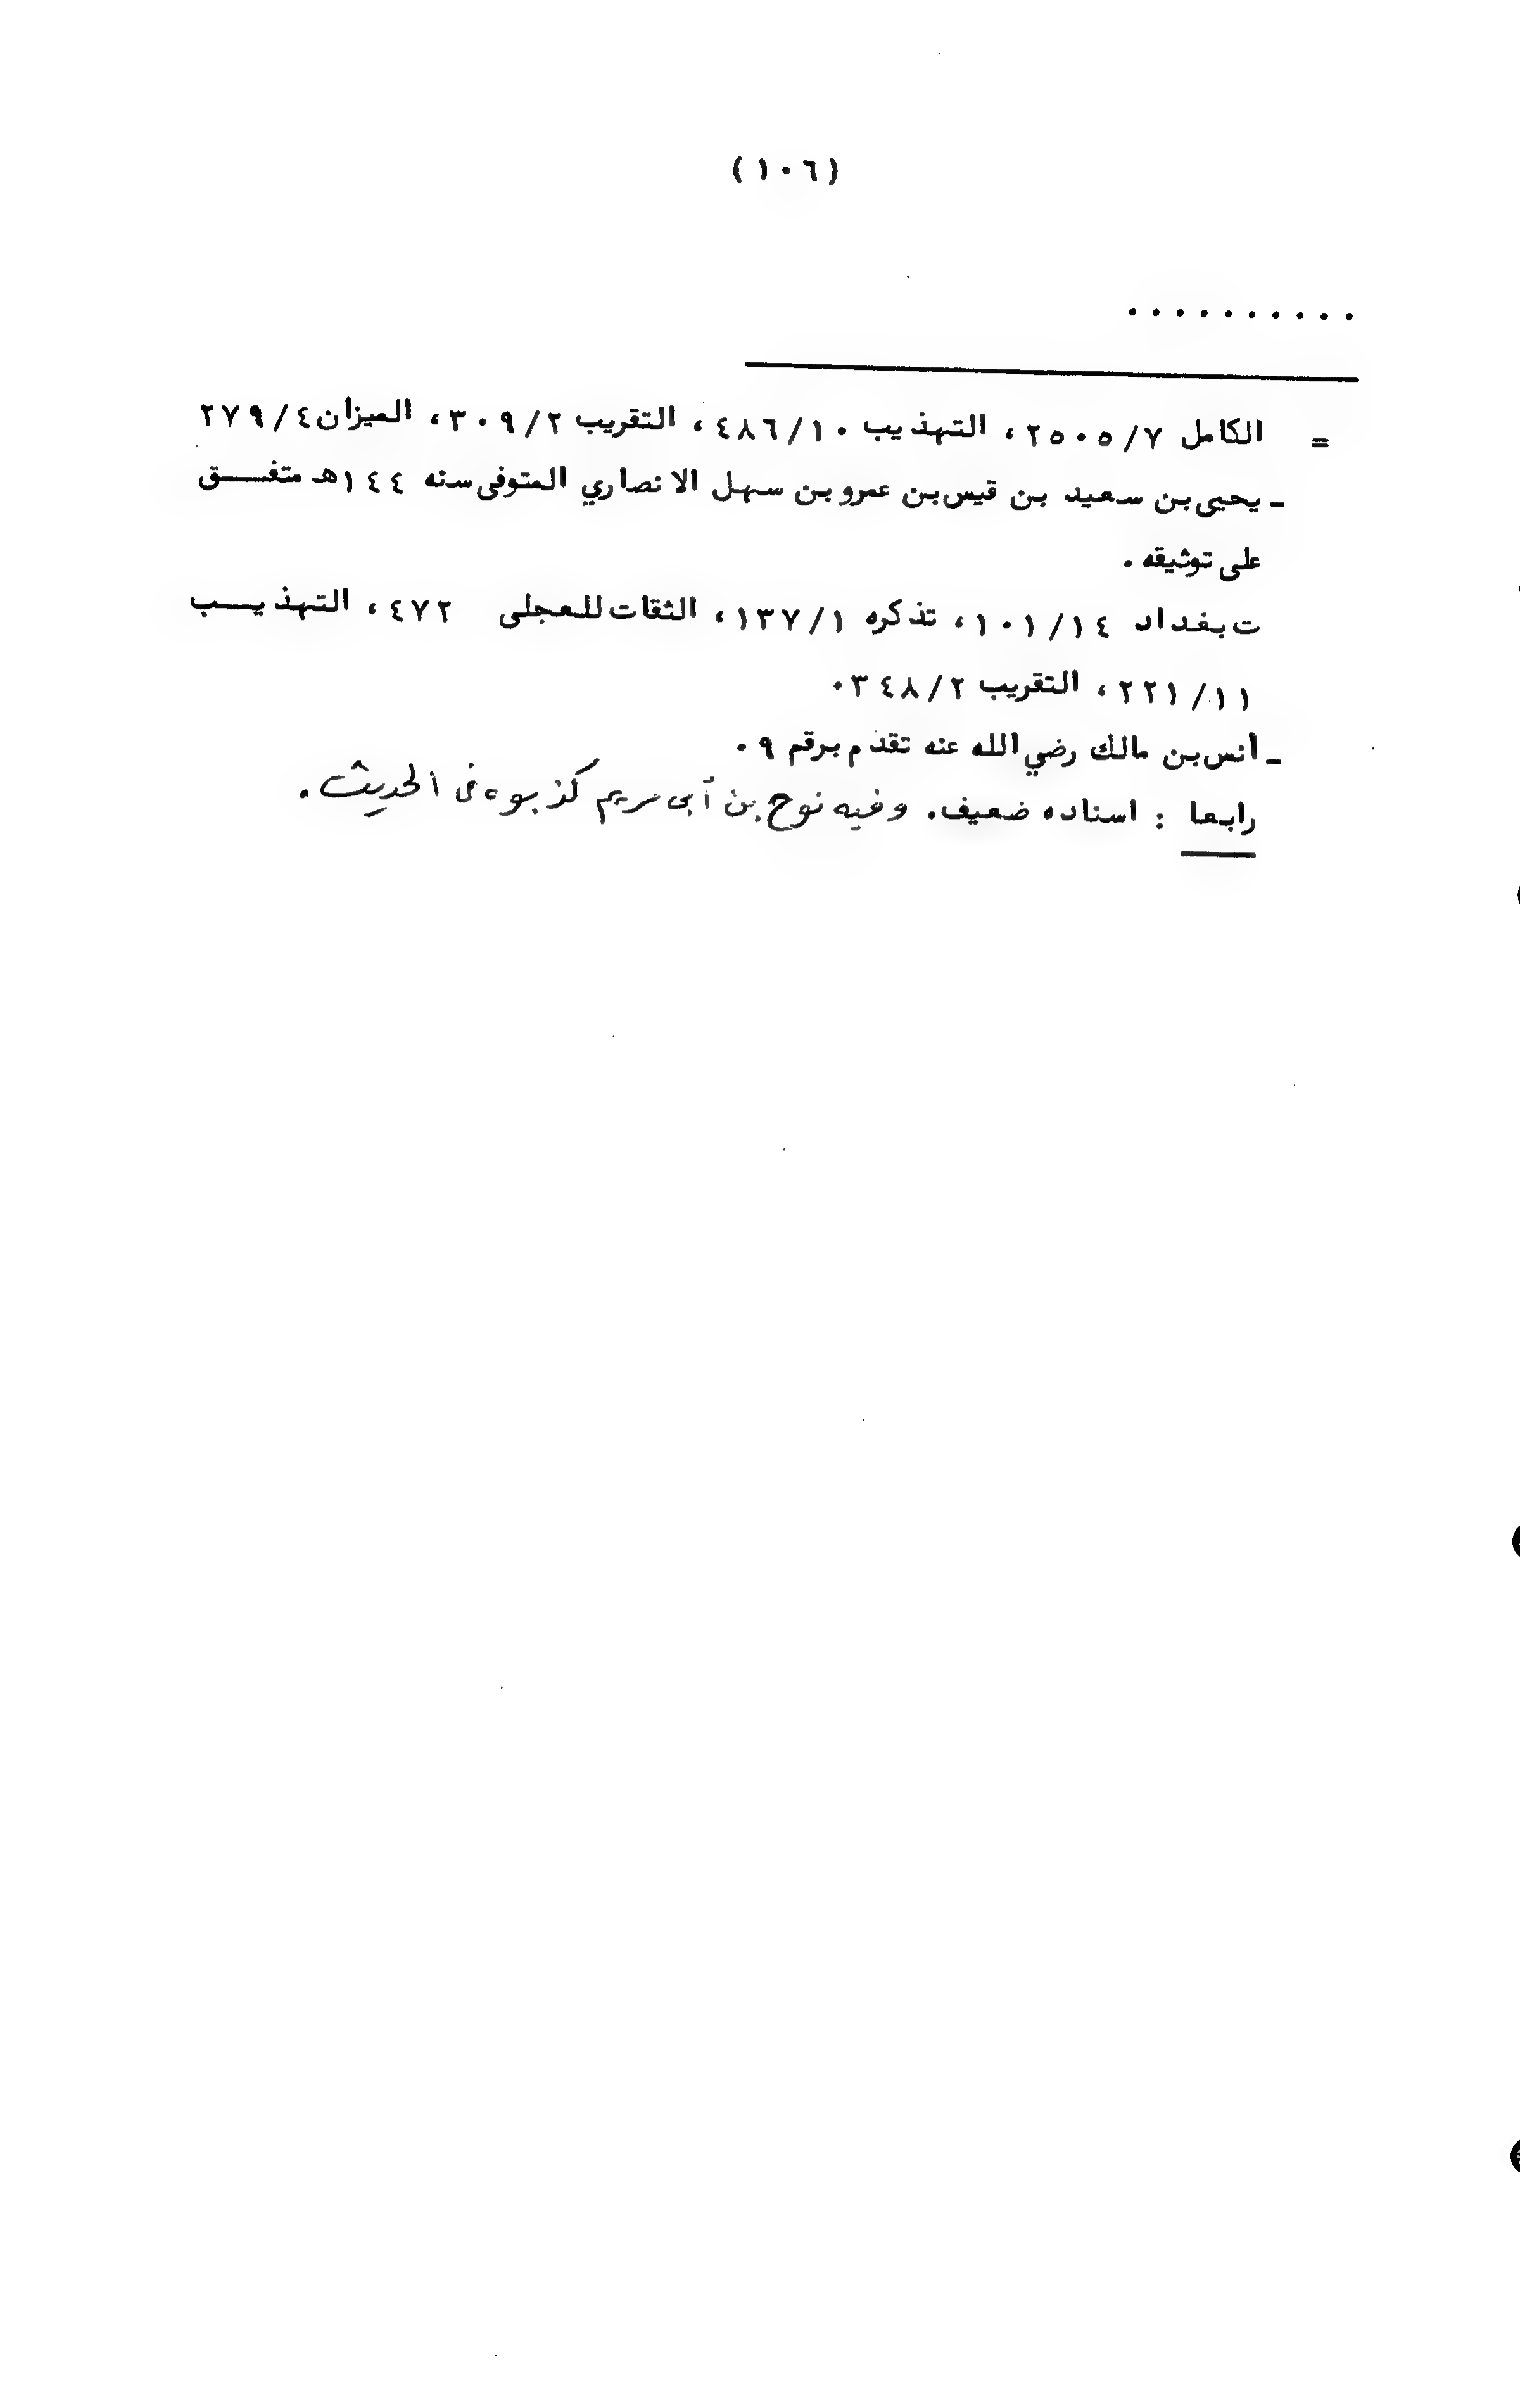 (١٠٦)
. . . . . . . . . .
= الكامل ٢٥٠٥/٧، التهذيب ٤٨٦/١٠، التقريب ٣٠٩/٢، الميزان ٢٧٩/٤
- يحيى بن سعيد بن قيس بن عمرو بن سهل الانصاري المتوفى سنه ١٤٤هـ متفـــق
على توثيقه .
ت بغداد ١٠١/١٤، تذكره ١٣٧/١، الثقات للعجلى ٤٧٢، التهذيـــب
٢٢١/١١، التقريب ٣٤٨/٢.
- أنس بن مالك رضي الله عنه تقدم برقم ٩ .
رابعا : اسناده ضعيف. وفيه نوح بن أبى مريم كذبوه فى الحديث .